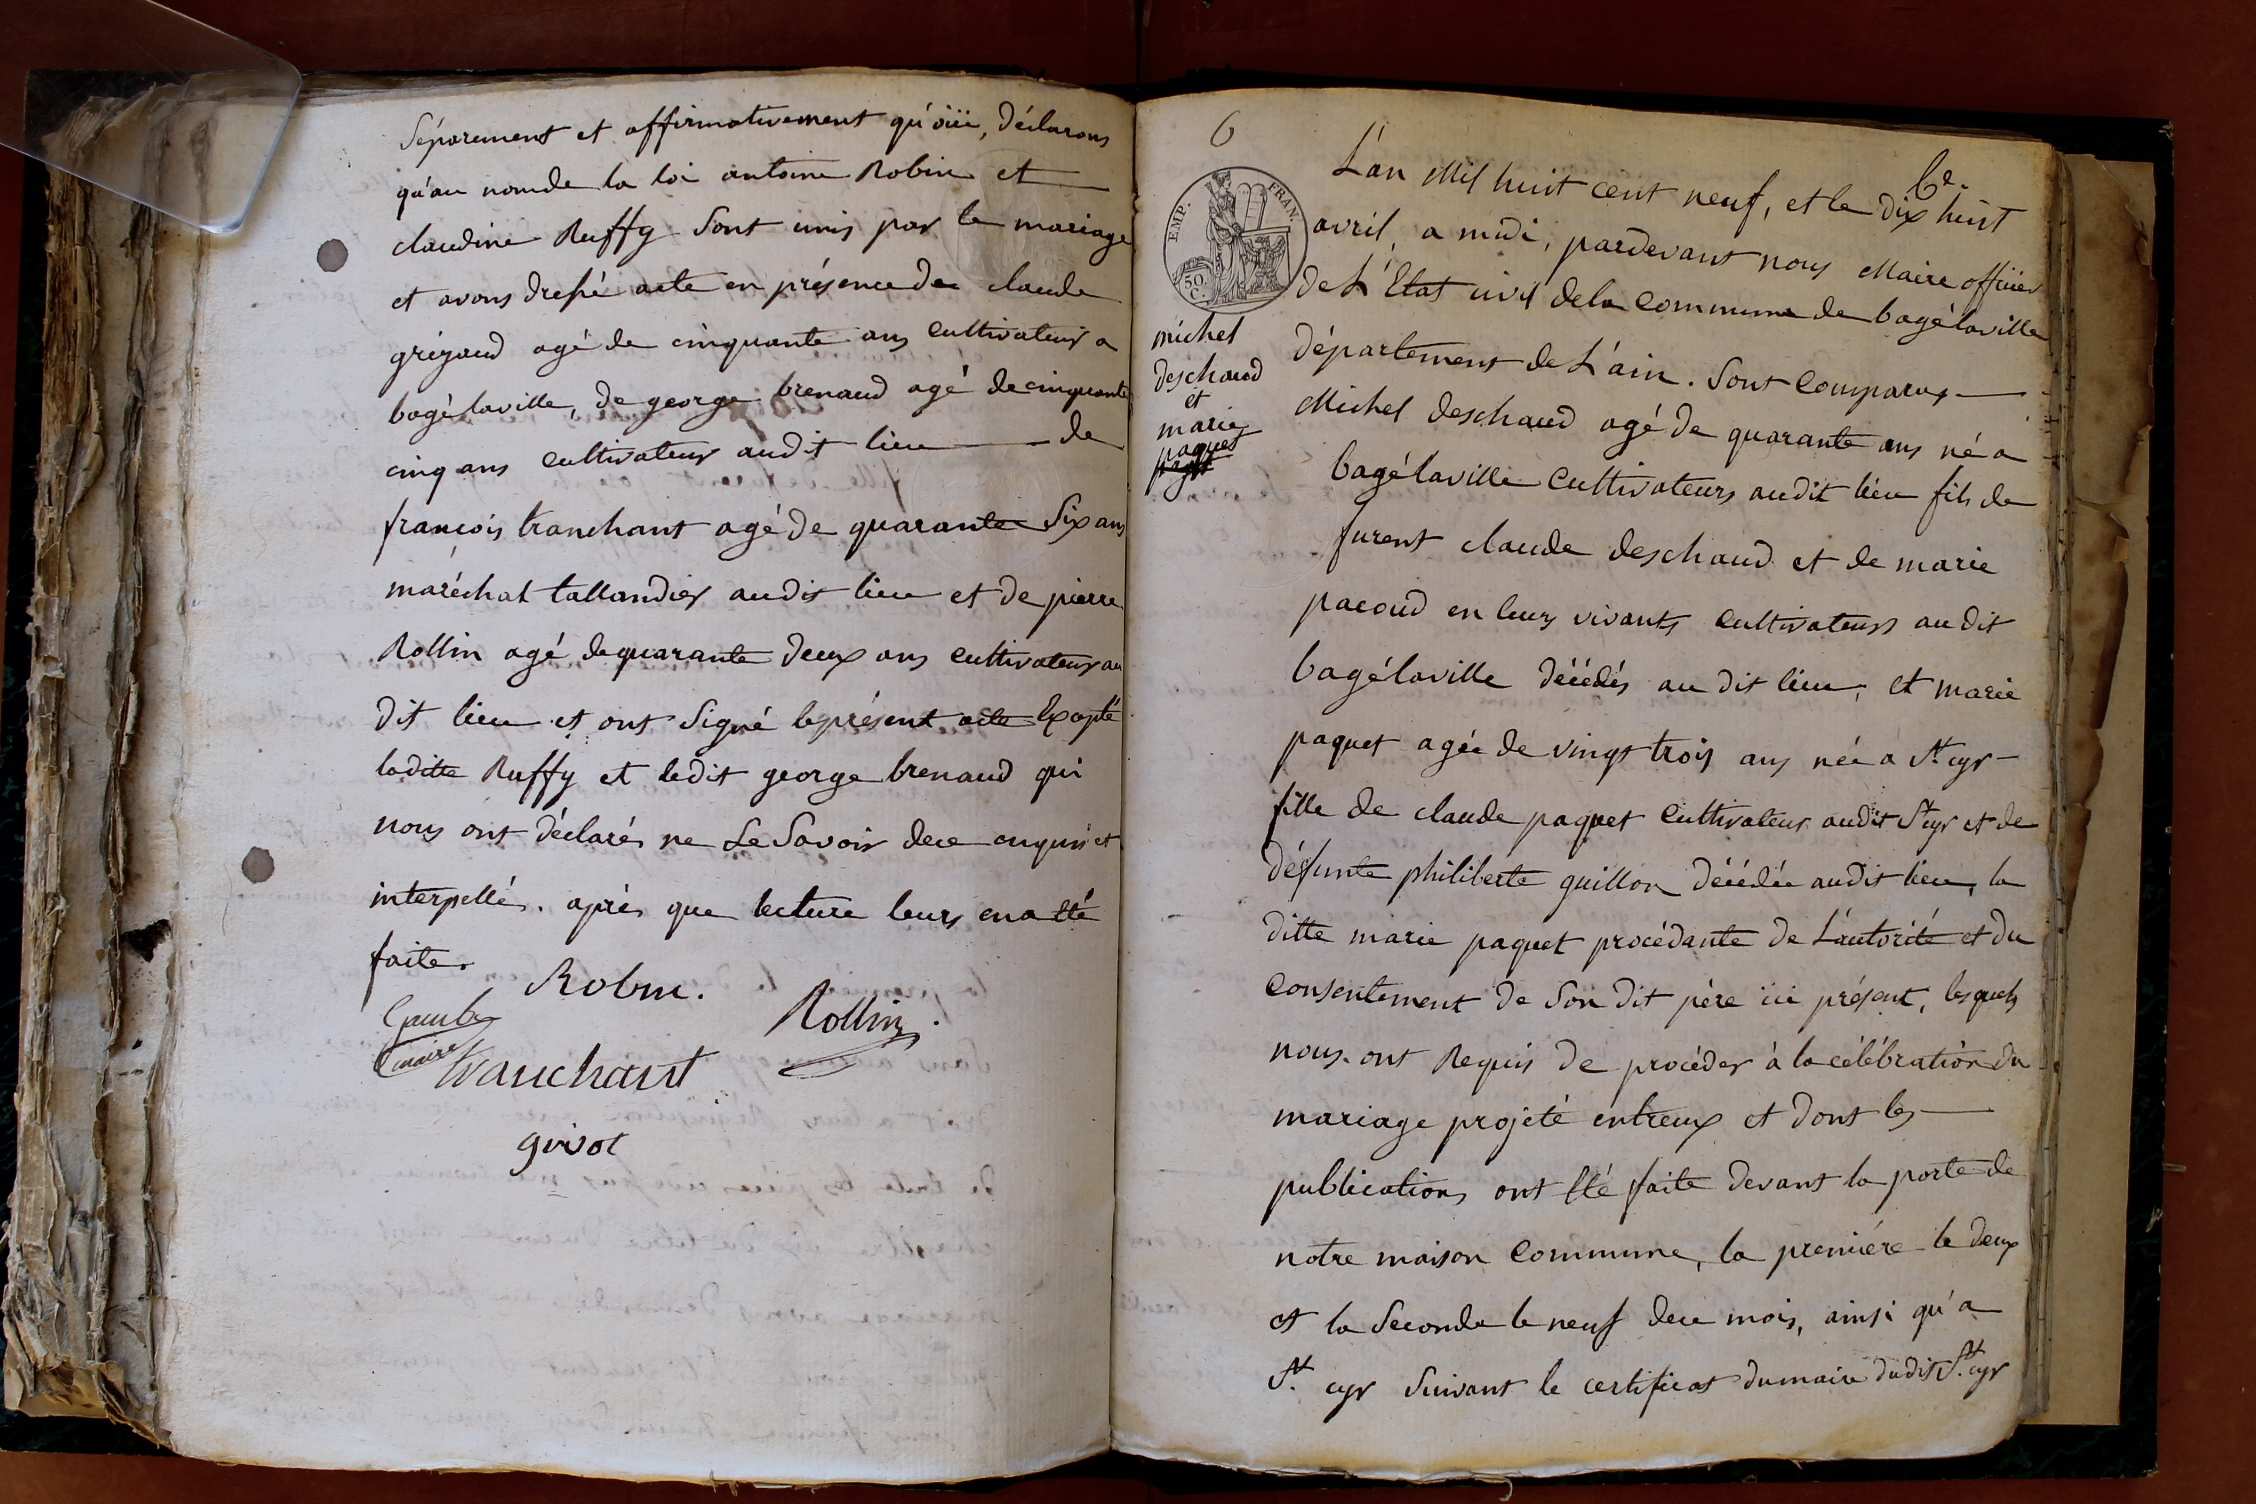 Séparement et affirmativement qu'oüi, déclarons
qu'au nom de la loi antoine Robin et
claudine Ruffy Sont unis par le mariage
et avons dressé acte en présence de claude
agé de cinquante ans cultivateur a
bagélaville, de george brenaud agé de cinquante
cinq ans cultivateur audit lieu de
françois tranchant agé de quarante Six ans
maréchal tallandier audit lieu et de pierre
Rollin agé de quarante deux ans cultivateur au
dit lieu et ont Signé le présent acte Excepté
laditte Ruffy et ledit george brenaud qui
nous ont déclarés ne Le Savoir de ce enquis et
interpellés. après que lecture leurs en a été
faite.
Robin.
Rollin.
maire
tranchant
grivot
6
6e.
EMP. FRAN.
50. C.
michel
deschaud
et
marie
paquet
L'an Mil huit cent neuf, et le dix huit
avril, a midi, pardevant nous Maire officier
de L'Etat civil de la commune de bagélaville
département de L'ain. Sont Comparus
Michel deschaud agé de quarante ans né a
bagélaville Cultivateurs audit lieu fils de
furent claude deschaud et de marie
pacoud en leurs vivants cultivateurs au dit
bagélaville décédés au dit lieu, et marie
paquet agée de vingt trois ans née a St. cyr
fille de claude paquet Cultivateur audit St cyr et de
défunte philiberte guillon décédée audit lieu, la
ditte marie paquet procédante de L'autorité et du
Consentement de Son dit père ici présent, lesquels
nous ont Requis de procéder à la célébration du
mariage projeté entreux et dont les
publications ont été faite devant la porte de
notre maison Commune, la première le deux
et la Seconde le neuf de ce mois, ainsi qu'a
St. cyr Suivant le certificat du maire dudit St. cyr